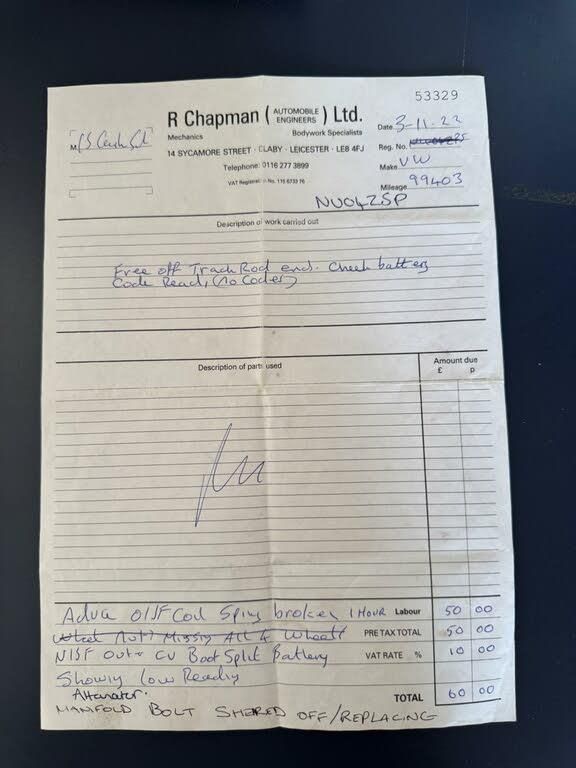 53329
R Chapman ( AUTOMOBILE ENGINEERS ) Ltd.
Mechanics Bodywork Specialists
14 SYCAMORE STREET · CLABY · LEICESTER · LE8 4FJ
Telephone: 0116 277 3899
VAT Registration No. 115 6733 76
M
Date 3-11-22
Reg. No.
Make VW
Mileage 99403
NU04ZSP
Description of work carried out
Free off Track Rod ends. Check battery
Code Read, (No Codes)
Description of parts used Amount due
£ p
Advise O/S/F Coil Spring broken 1 HOUR Labour 50 00
Wheel Nuts Missing All 4 Wheels PRE TAX TOTAL 50 00
N/S/F Outer CV Boot Split Battery VAT RATE % 10 00
Showing low Reading
Alternator. TOTAL 60 00
MANIFOLD BOLT SHERED OFF/REPLACING